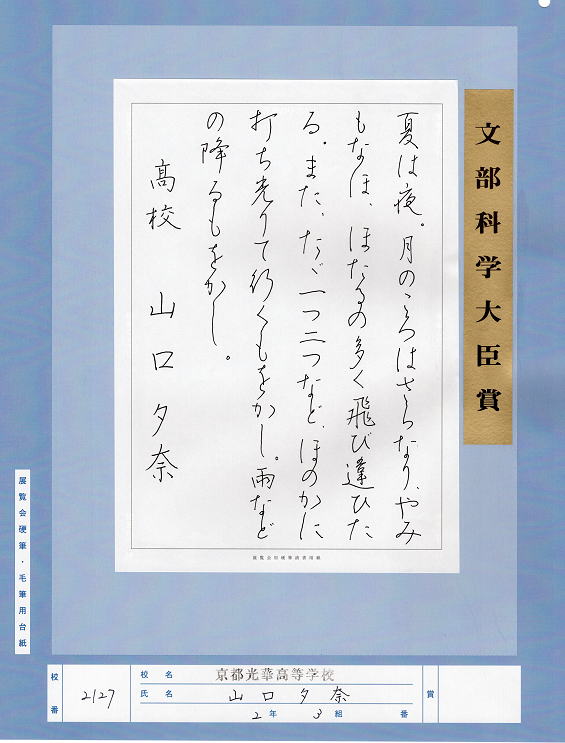 文部科学大臣賞
夏は夜。月のころはさらなり、やみ
もなほ、ほたるの多く飛び違ひた
る。また、たゞ一つ二つなど、ほのかに
打ち光りて行くもをかし。雨など
の降るもをかし。
高校 山口夕奈
展覧会用硬筆清書用紙
展覧会硬筆・毛筆用台紙
校番 2127
校名 京都光華高等学校
氏名 山口夕奈
2年 3組 番
賞